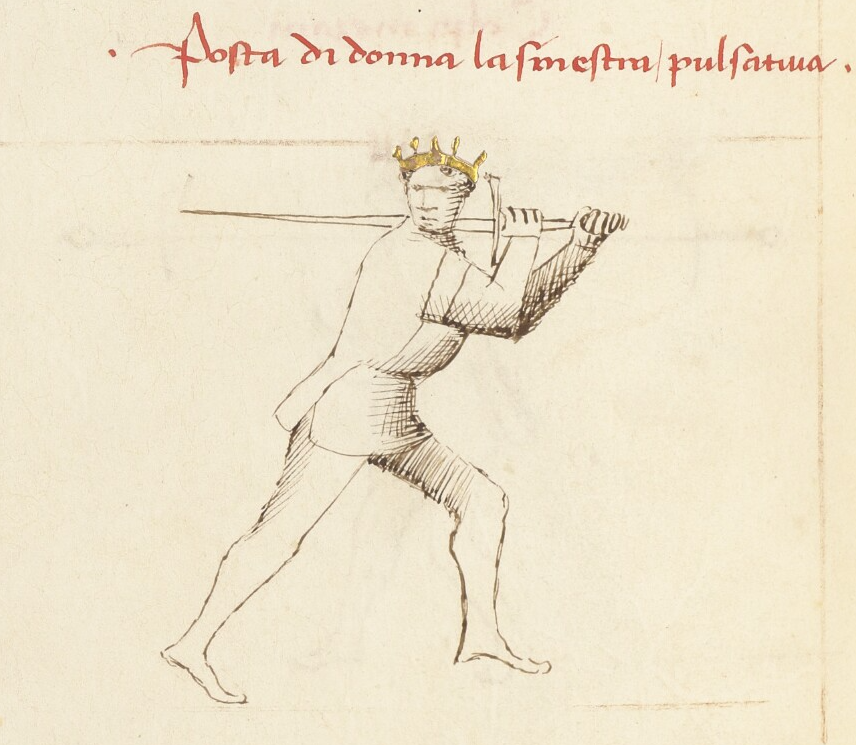 . Posta di donna la sinestra / pulsativa .